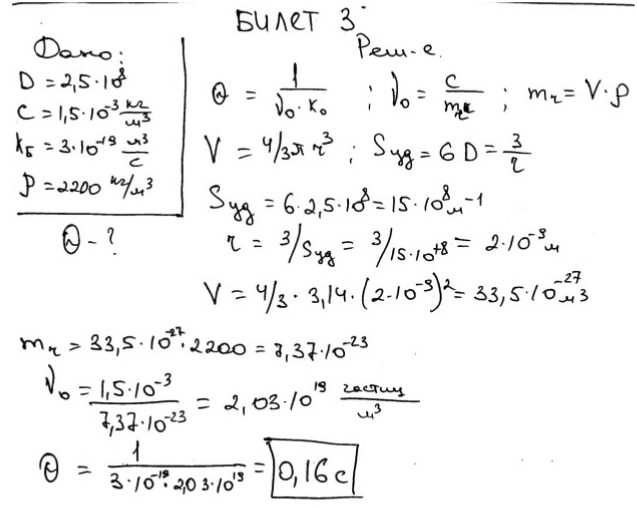 БИЛЕТ 3
Дано:
D = 2,5·10⁸
C = 1,5·10⁻³ кг/м³
k_Б = 3·10⁻¹⁹ м³/с
ρ = 2200 кг/м³
Θ - ?
Реш-е.
Θ = 1/(ν₀·K₀) ; ν₀ = C/m_ч ; m_ч = V·ρ
V = 4/3 π r³ ; S_уд = 6D = 3/r
S_уд = 6·2,5·10⁸ = 15·10⁸ м⁻¹
r = 3/S_уд = 3/15·10⁺⁸ = 2·10⁻⁹ м
V = 4/3 · 3,14·(2·10⁻⁹)² = 33,5·10⁻²⁷ м³
m_ч = 33,5·10⁻²⁷·2200 = 7,37·10⁻²³
ν₀ = 1,5·10⁻³/7,37·10⁻²³ = 2,03·10¹⁹ частиц/м³
Θ = 1/(3·10⁻¹⁹·2,03·10¹⁹) = 0,16 с